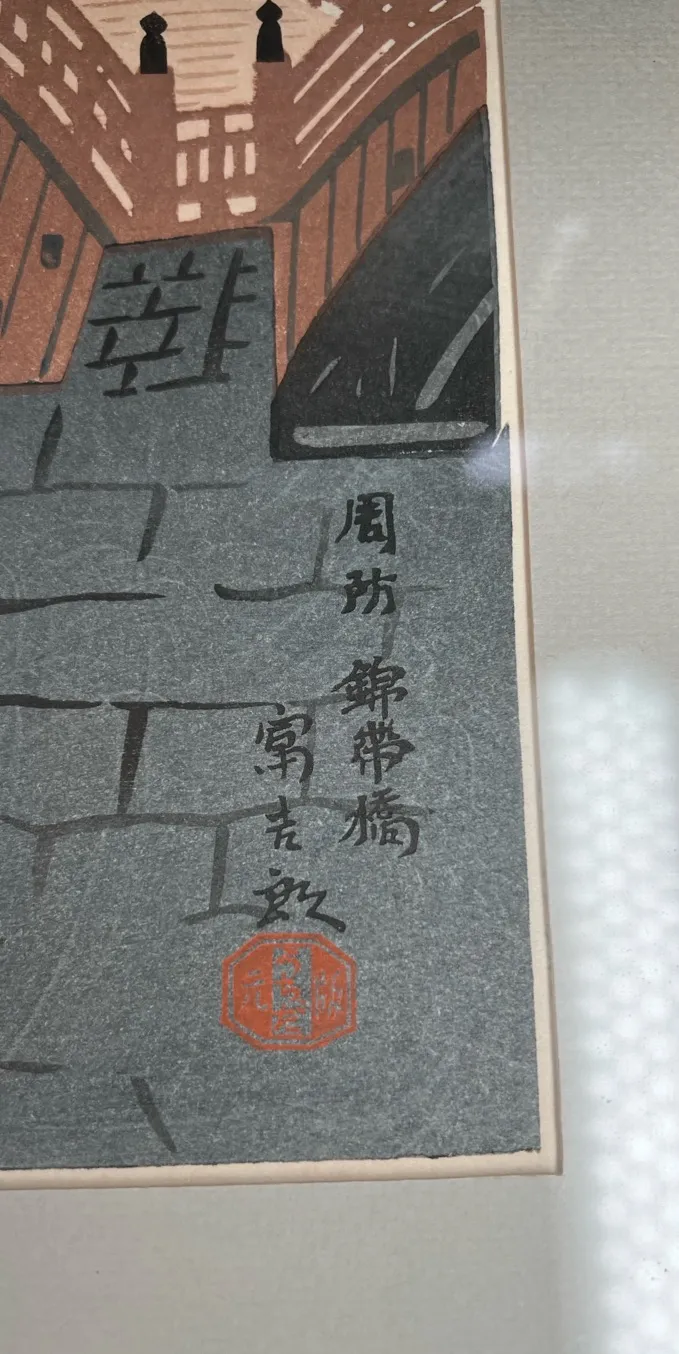 周防 錦帶橋
富吉郎